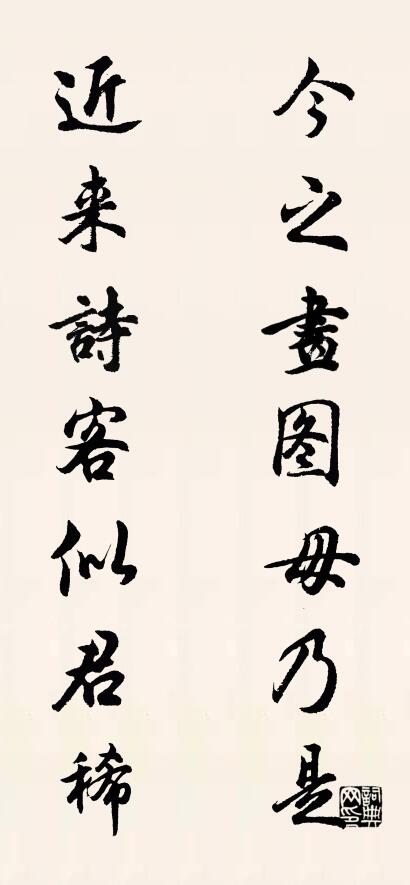 今之畫图毋乃是
近来詩客似君稀
詞典网印